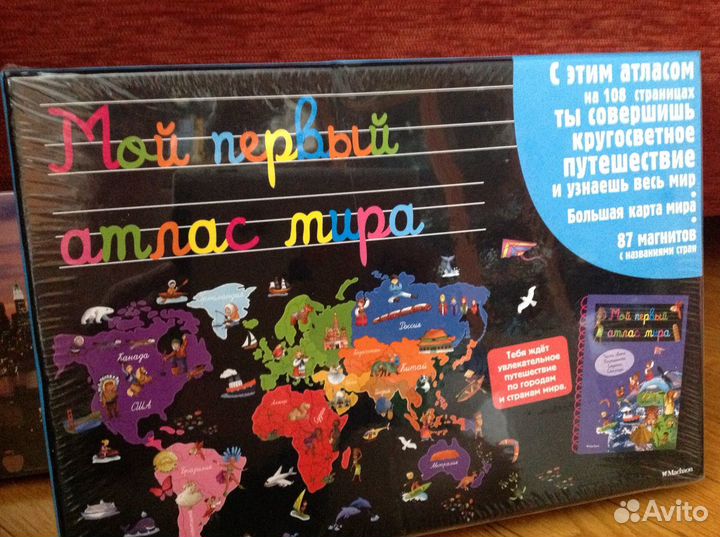 Мой первый
атлас мира
С этим атласом
на 108 страницах
ты совершишь
кругосветное
путешествие
и узнаешь весь мир
Большая карта мира
87 магнитов
с названиями стран
Гренландия
Канада
США
Бразилия
Россия
Китай
Австралия
Тебя ждёт
увлекательное
путешествие
по городам
и странам мира.
Мой первый
атлас мира
Machaon
Avito